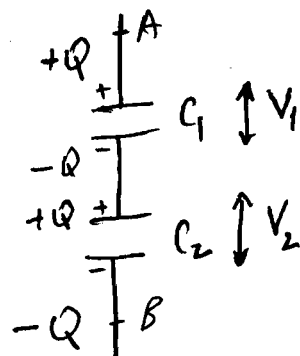 A
+Q
+
C₁ V₁
−
−Q
+Q +
C₂ V₂
−
−Q B